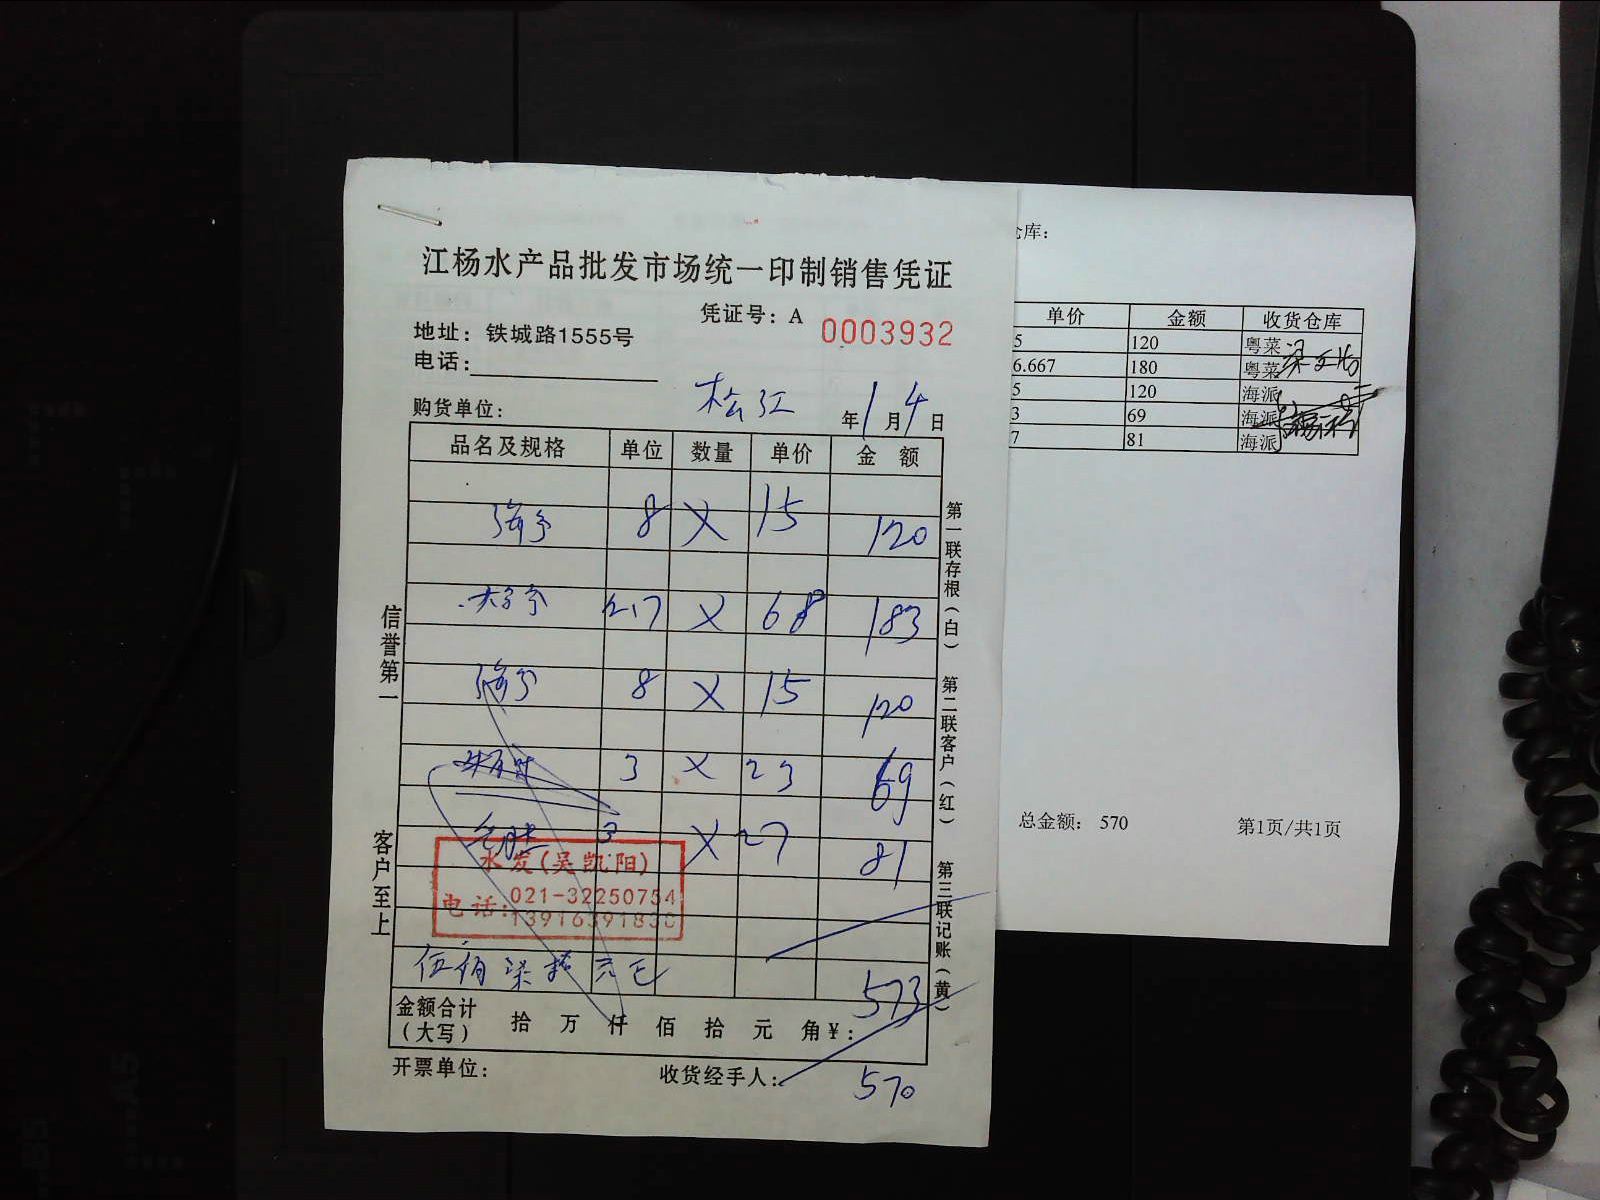 江杨水产品批发市场统一印制销售凭证
凭证号：A 0003932
地址：铁城路1555号
电话：
购货单位： 松江 年1月4日
品名及规格 单位 数量 单价 金 额
8 X 15 120
2.7 X 68 183
8 X 15 120
3 X 23 69
3 X 27 81
水发(吴凯阳)
电话：021-32250754
伍佰柒拾元正
573
金额合计（大写） 拾 万 仟 佰 拾 元 角¥：
开票单位： 收货经手人：
570
信誉第一 客户至上
第一联存根(白) 第二联客户(红) 第三联记账(黄)
仓库：
单价 金额 收货仓库
5 120 粤菜
6.667 180 粤菜
5 120 海派
3 69 海派
7 81 海派
总金额： 570 第1页/共1页